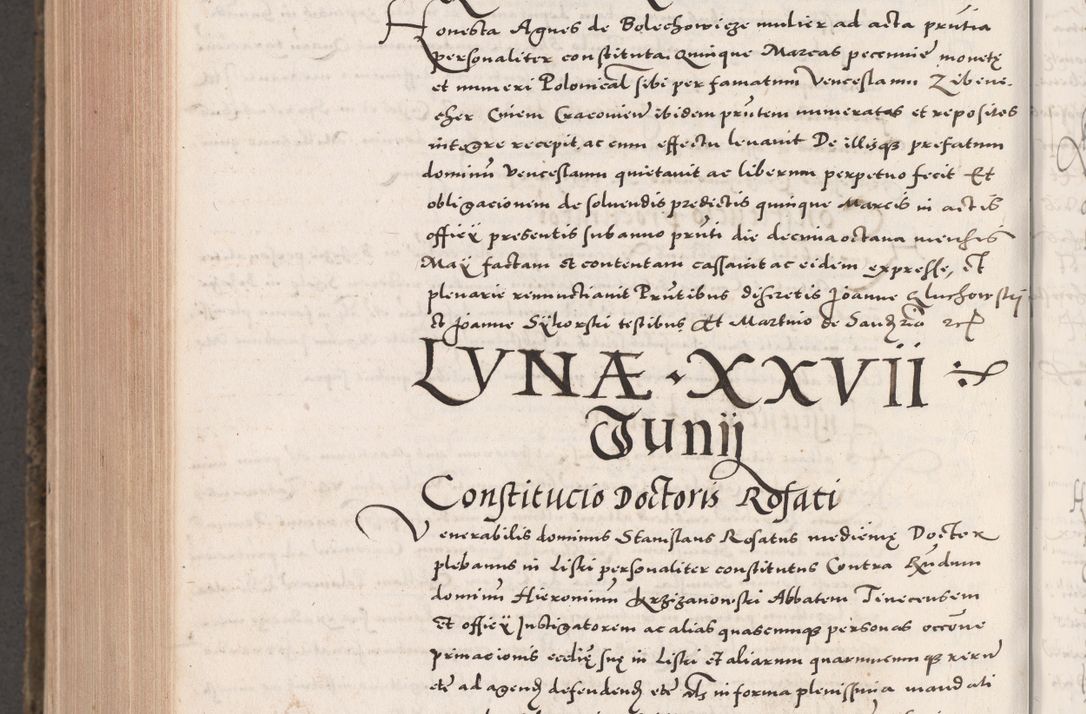 Honesta Agnes de Bolechowicze mulier ad acta prn̄tia
personaliter constituta. Quinque Marcas pecunie monetę
et numeri Polonical sibi per famatum Venceslaum Zibene-
cher Civem Cracovien̄ ibidem prn̄tem numeratas et repositas
integre recepit, ac cum effectu levavit De illisqꝫ prefatum
dominū Venceslaum quietavit ac liberum perpetuo fecit Et
obligacionem de solvendis predictis quinque Marcis in actis
officÿ presentis sub anno prn̄ti die decima octava mensis
Maÿ factam et contentam cassavit ac eidem expresse, et
plenarie renunctiavit Prn̄tibus discretis Joanne Gluchowskij
et Joanne Sÿkorski testibus Et Martino de
LVNÆ · XXVII
Junij
Constitucio Doctoris Rosati
Venerabilis dominus Stanislaus Rosatus medicinę Doctor
plebanus in Liski personaliter constitutus Contra Rn̄dum
dominū Hieronimum Krzizanowski Abbatem Tinecensem
et officÿ Instigatorem ac alias quascumqꝫ personas occōne
primacionis ecclię suę in Liski et aliarum quarumcumqꝫ rerū
etc̄ ad agend̄ defendend̄ etc̄ in forma plenissima mandati